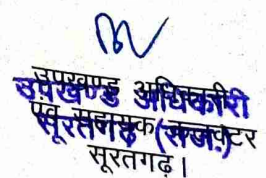 उपखण्ड अधिकारी
उपखण्ड अधिकारी
एवं सहायक कलक्टर
सूरतगढ़ (राज.)
सूरतगढ़।